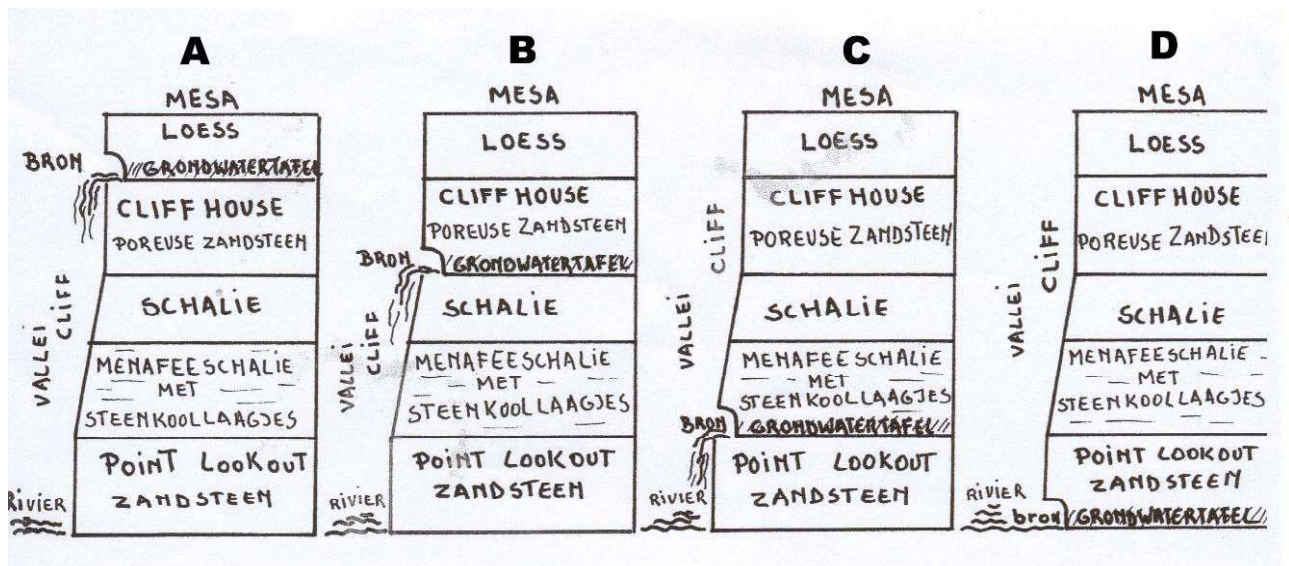 A
MESA
LOESS
BRON
GRONDWATERTAFEL
CLIFF HOUSE
POREUSE ZANDSTEEN
VALLEI
CLIFF
SCHALIE
MENAFEESCHALIE
MET
STEENKOOLLAAGJES
POINT LOOKOUT
ZANDSTEEN
RIVIER
B
MESA
LOESS
CLIFF HOUSE
POREUSE ZANDSTEEN
BRON
GRONDWATERTAFEL
VALLEI
CLIFF
SCHALIE
MENAFEESCHALIE
MET
STEENKOOLLAAGJES
POINT LOOKOUT
ZANDSTEEN
RIVIER
C
MESA
LOESS
CLIFF HOUSE
POREUSE ZANDSTEEN
VALLEI
CLIFF
SCHALIE
MENAFEESCHALIE
MET
STEENKOOLLAAGJES
BRON
GRONDWATERTAFEL
POINT LOOKOUT
ZANDSTEEN
RIVIER
D
MESA
LOESS
CLIFF HOUSE
POREUSE ZANDSTEE
VALLEI
CLIFF
SCHALIE
MENAFEESCHALIE
MET
STEENKOOLLAAGJES
POINT LOOKOUT
ZANDSTEEN
RIVIER
bron
GRONDWATERTAFEL